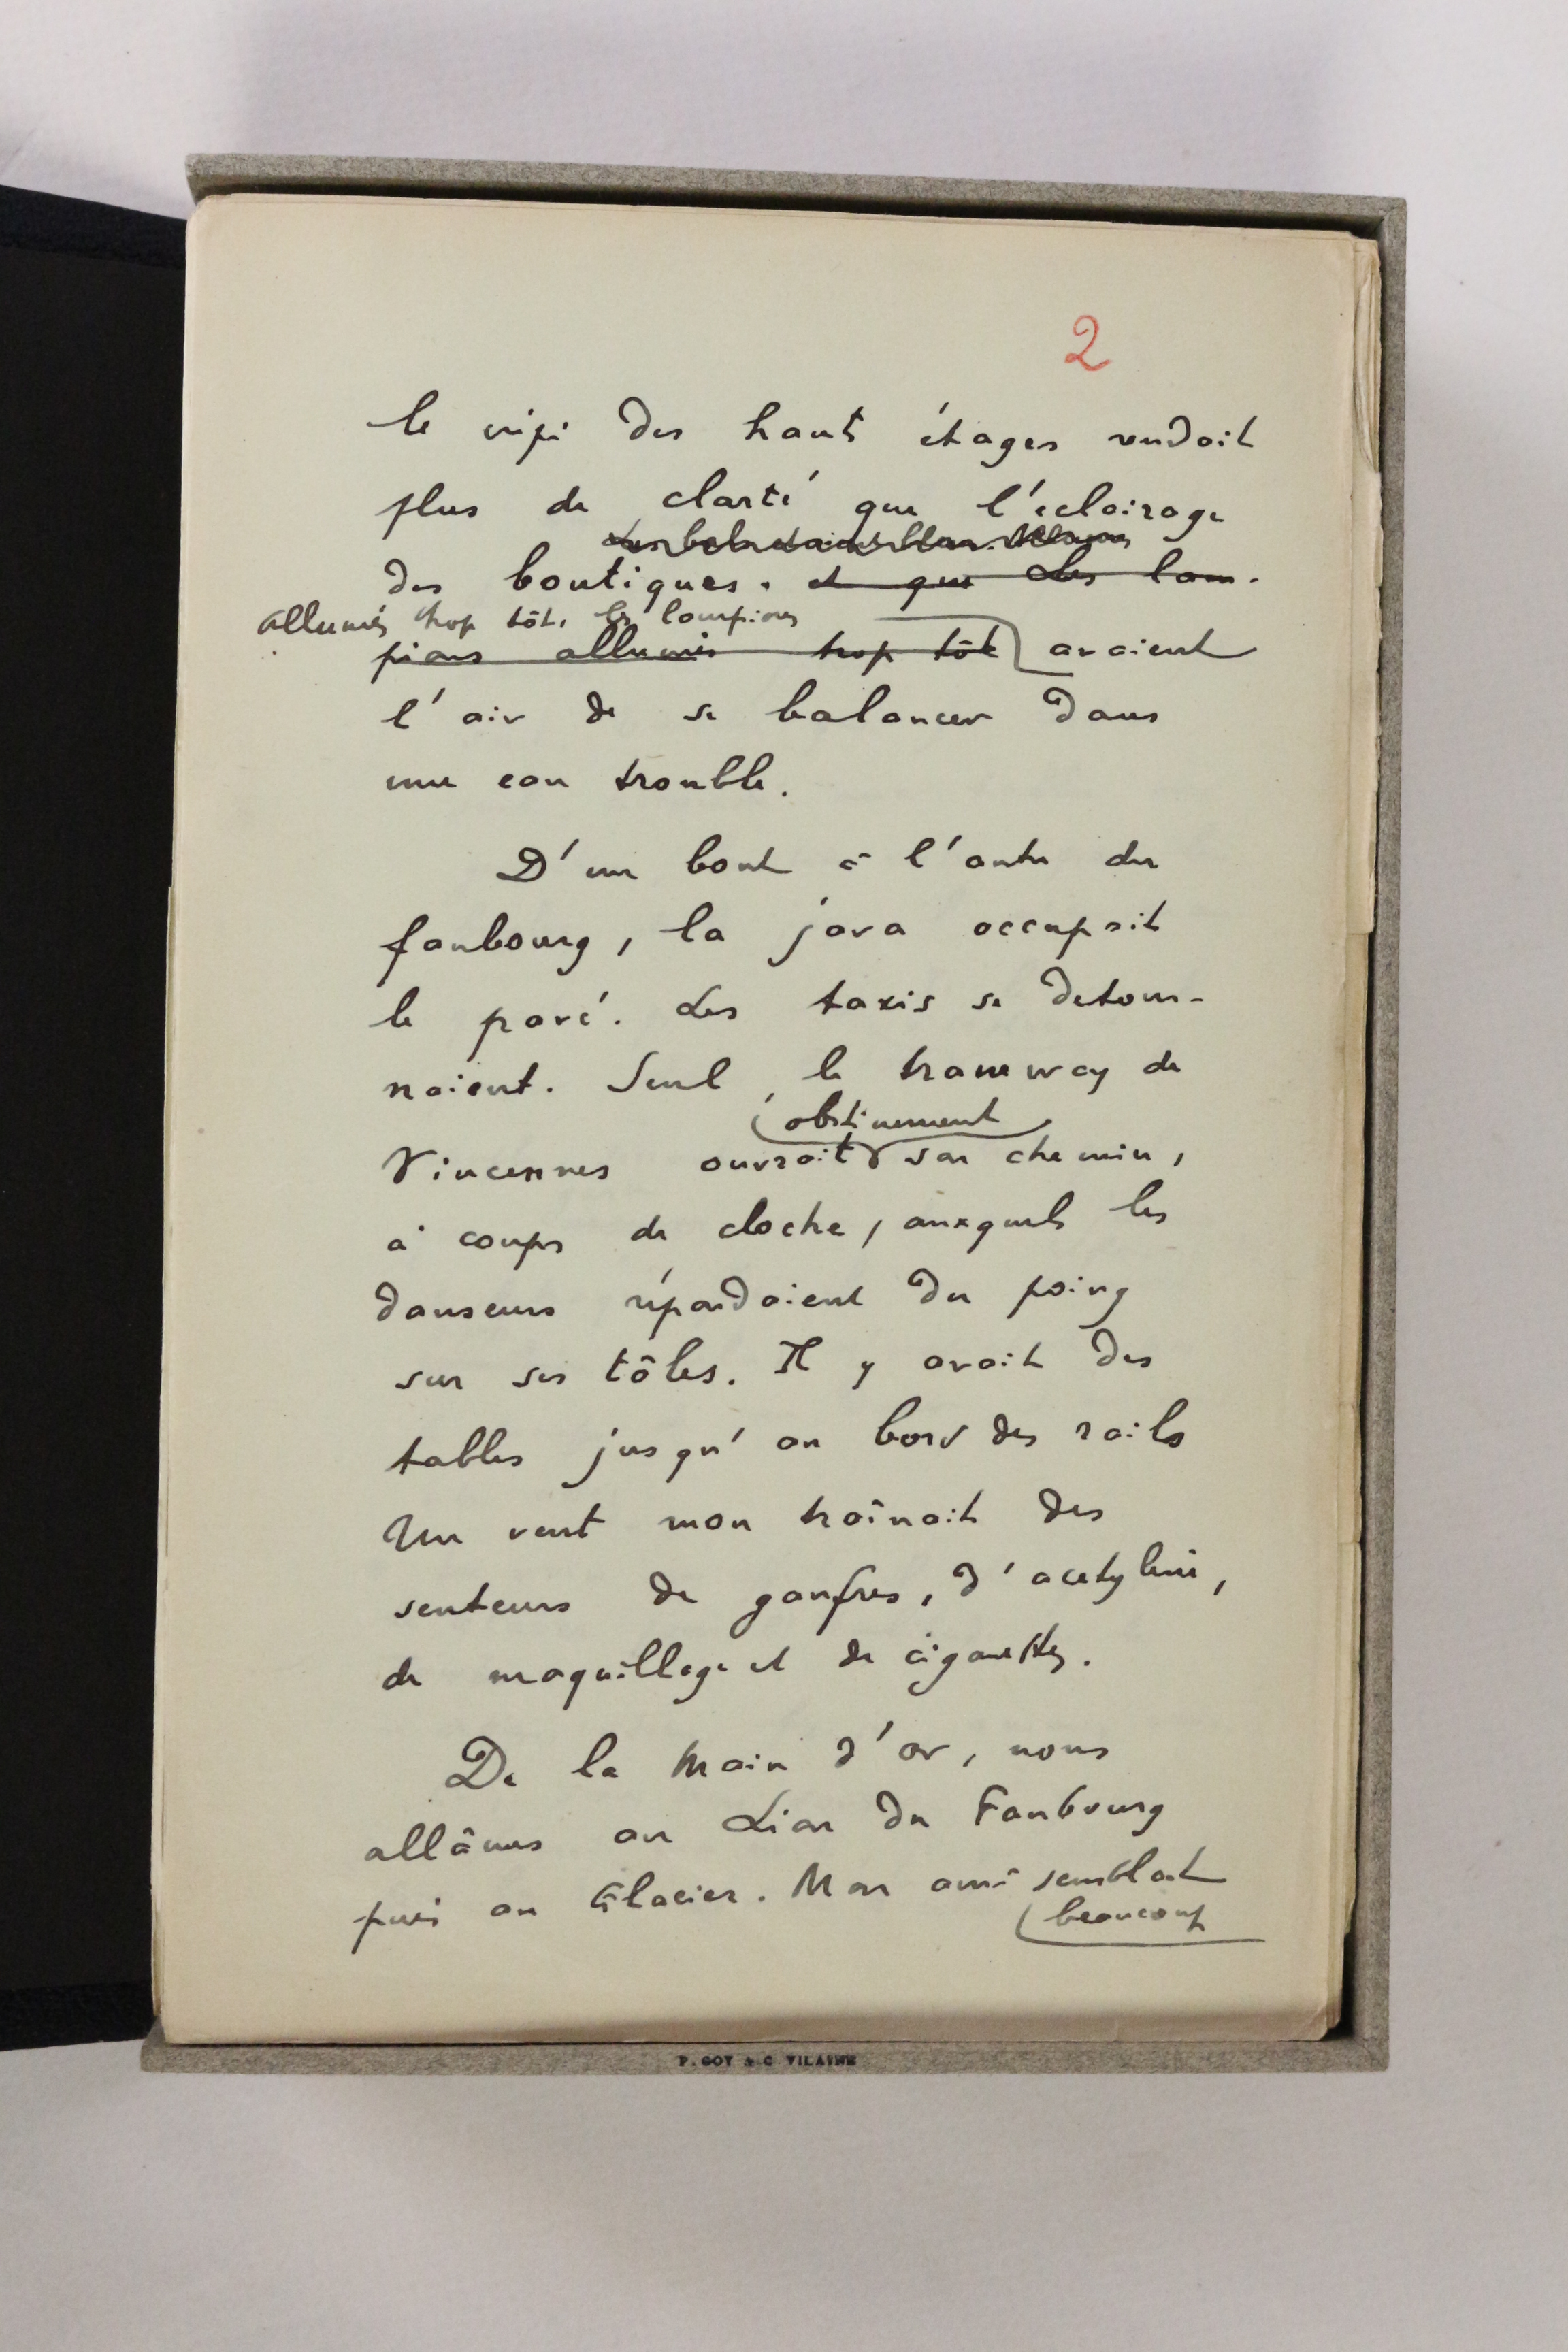 2
le crépi des hauts étages rendait
plus de clarté que l'éclairage
des boutiques. et que les lam-
allumés trop tôt, les lampions
pions allumés trop tôt avaient
l'air de se balancer dans
une eau trouble.
D'un bout à l'autre du
faubourg, la java occupait
le pavé. Les taxis se detour-
naient. Seul, le tramway de
obstinement
Vincennes ouvrait son chemin,
à coups de cloche, auxquels les
danseurs répondaient du poing
sur ses tôles. Il y avait des
tables jusqu'au bord des rails
Un vent mou traînait des
senteurs de gaufres, d'acetylène,
de maquillage et de cigarettes.
De la Main d'or, nous
allâmes au Lion du Faubourg
puis au Glacier. Mon ami semblait
beaucoup
P. GOY & C VILAINE